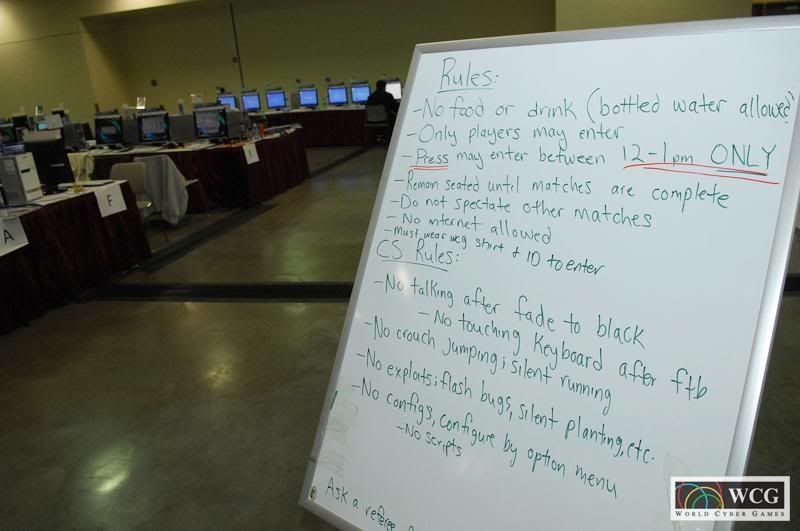 Rules:
-No food or drink (bottled water allowed)
-Only players may enter
-Press may enter between 12-1pm ONLY
-Remain seated until matches are complete
-Do not spectate other matches
-No internet allowed
-Must wear wcg shirt + ID to enter
CS Rules:
-No talking after fade to black
-No touching Keyboard after ftb
-No crouch jumping; silent running
-No exploits; flash bugs, silent planting, etc.
-No configs, configure by option menu
-No scripts
Ask a referee
A
F
WCG
WORLD CYBER GAMES